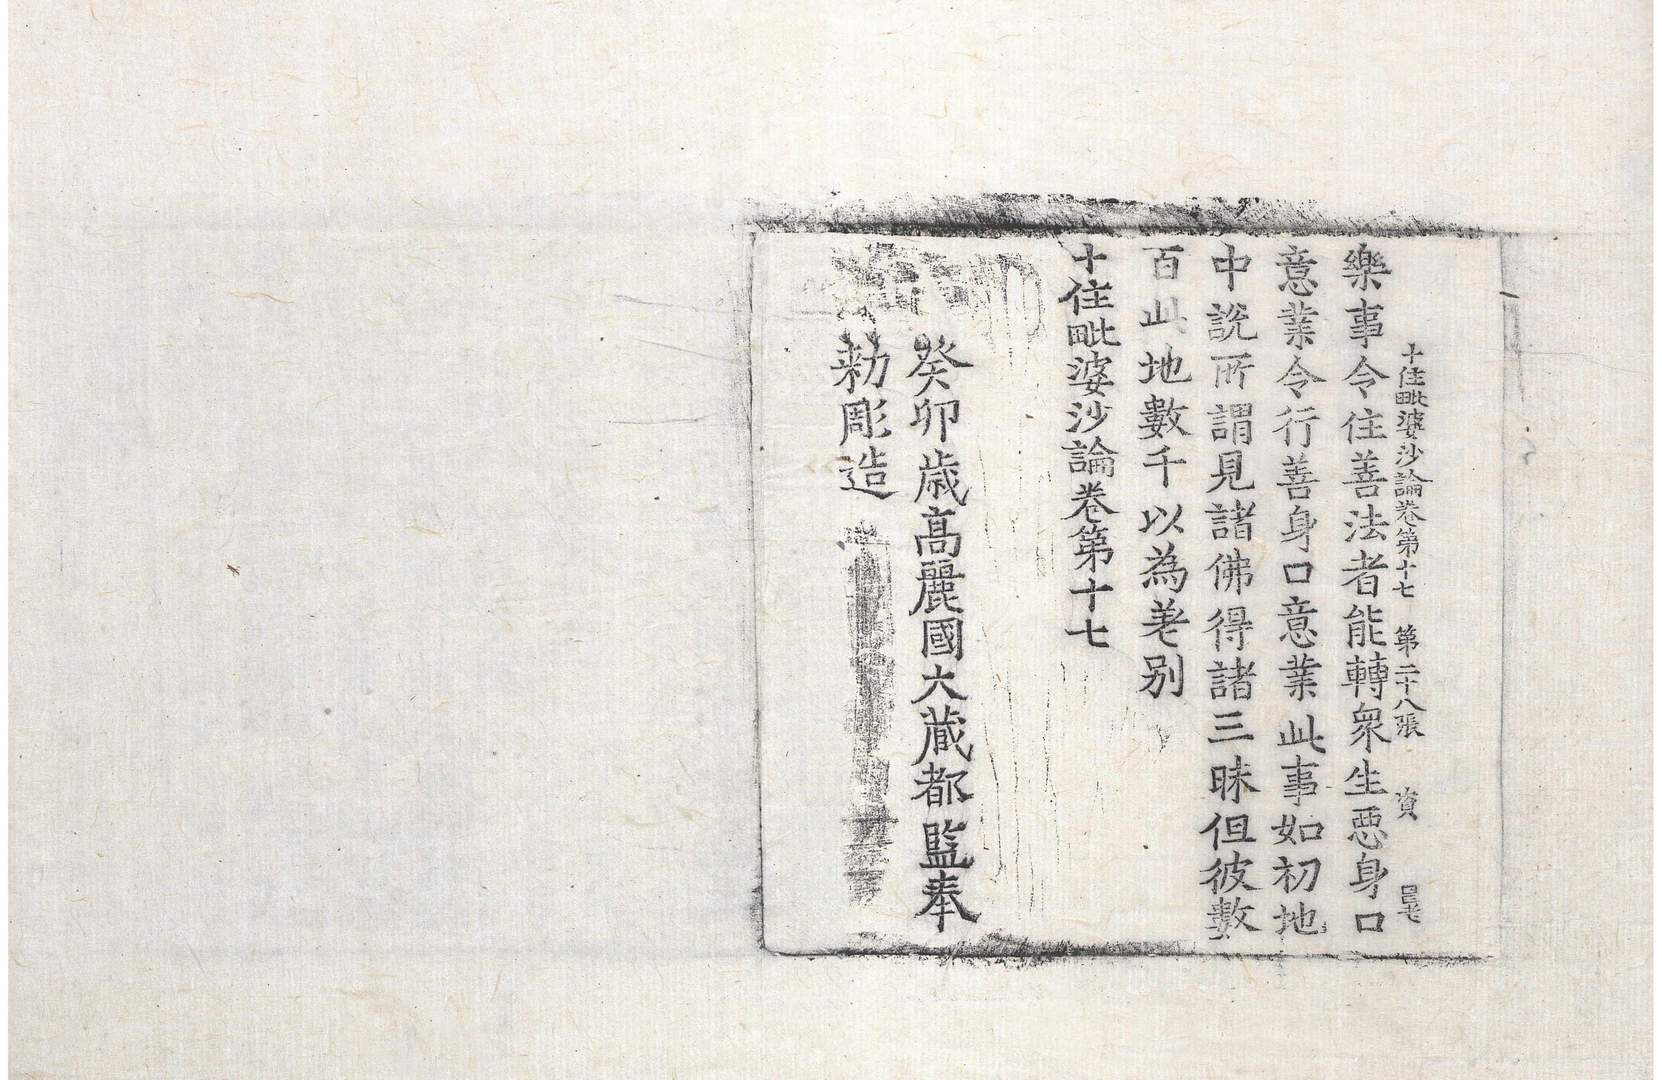 十住毗婆沙論卷第十七 第二十八張 資
樂事令住善法者能轉衆生惡身口
意業令行善身口意業此事如初地
中說所謂見諸佛得諸三昧但彼數
百此地數千以為差别
十住毗婆沙論卷第十七
癸卯歳高麗國大藏都監奉
勑彫造